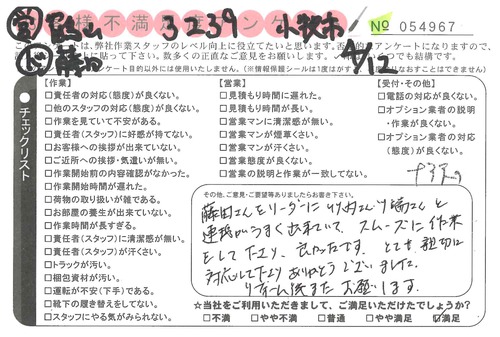 営 畠山 3239 小牧市 4/12
ド 藤田
お客様不満足度アンケート
№ 054967
このアンケートは、弊社作業スタッフのレベル向上に役立てたいと思います。
【作業】
□責任者の対応(態度)が良くない。
□他のスタッフの対応(態度)が良くない。
□作業を見ていて不安がある。
□責任者(スタッフ)に好感が持てない。
□お客様への挨拶が出来ていない。
□ご近所への挨拶・気遣いが無い。
□作業開始前の内容確認がなかった。
□作業開始時間が遅れた。
□荷物の取り扱いが雑である。
□お部屋の養生が出来ていない。
□作業時間が長すぎる。
□責任者(スタッフ)に清潔感が無い。
□責任者(スタッフ)が汗くさい。
□トラックが汚い。
□梱包資材が汚い。
□運転が不安(下手)である。
□靴下の履き替えをしてない。
□スタッフにやる気がみられない。
【営業】
□見積もり時間に遅れた。
□見積もり時間が長い。
□営業マンに清潔感が無い。
□営業マンが煙草くさい。
□営業マンが汗くさい。
□営業態度が良くない。
□営業の説明と作業が一致してない。
【受付・その他】
□電話の対応が良くない。
□オプション業者の説明
・作業が良くない。
□オプション業者の対応
(態度)が良くない。
チェックリスト
その他、ご意見・ご要望等ありましたらお書き下さい。
藤田さんをリーダーに 竹内さん、八端さんと
連携がうまく出来ていて、スムーズに作業
をして下さり、良かったです。とても親切に
対応して下さりありがとうございました。
リフォーム後また お願いします。
☆当社をご利用いただきまして、ご満足いただけたでしょうか?
□不満 □やや不満 □普通 □やや満足 ☑満足